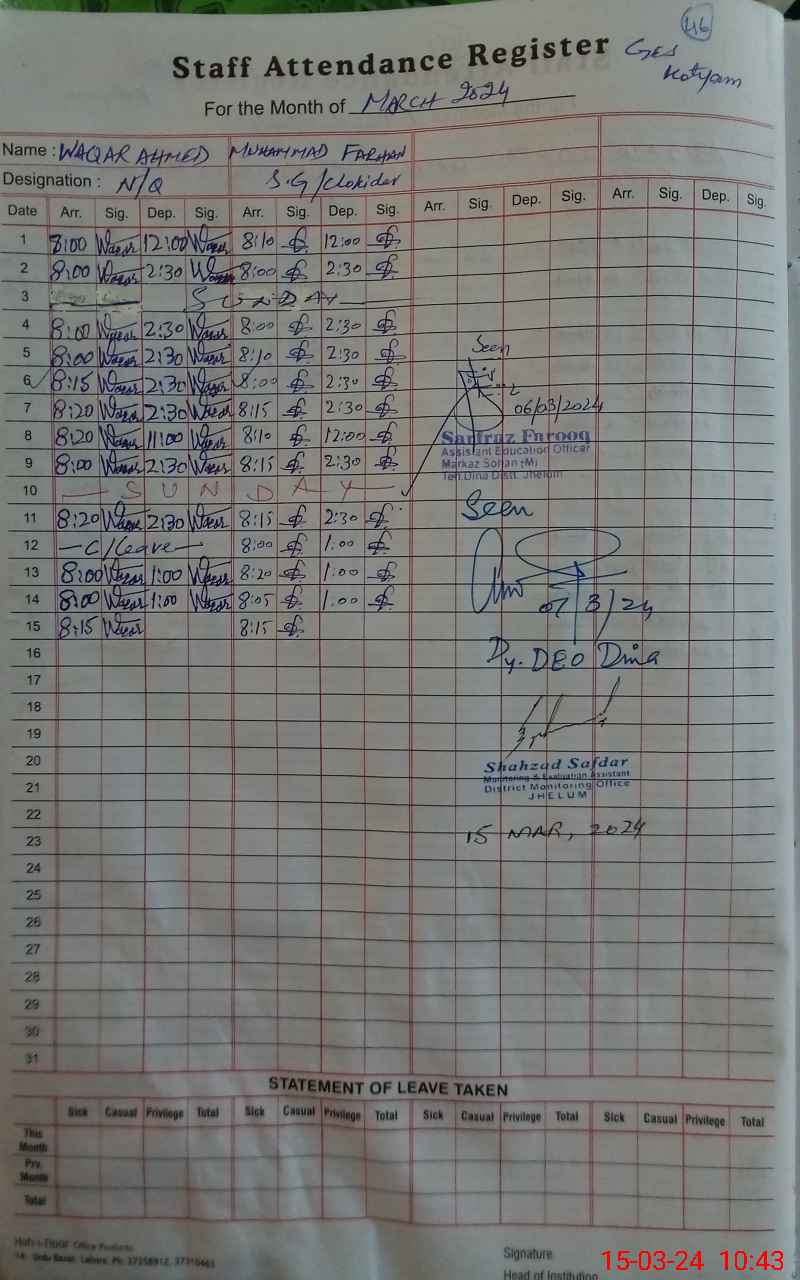 46
Staff Attendance Register GES
Kotyam
For the Month of MARCH 2024
Name : WAQAR AHMED MUHAMMAD FARHAN
Designation : N/Q S.G/Chokider
Date Arr. Sig. Dep. Sig. Arr. Sig. Dep. Sig. Arr. Sig. Dep. Sig. Arr. Sig. Dep. Sig.
1 8:00 Waqar 12:00 Waqar 8:10 12:00
2 8:00 Waqar 2:30 Waqar 8:00 2:30
3 SUNDAY
4 8:00 Waqar 2:30 Waqar 8:00 2:30
5 8:00 Waqar 2:30 Waqar 8:10 2:30 Seen
6 8:15 Waqar 2:30 Waqar 8:00 2:30
7 8:20 Waqar 2:30 Waqar 8:15 2:30 06/03/2024
8 8:20 Waqar 11:00 Waqar 8:10 12:00 Sarfraz Farooq
Assistant Education Officer
9 8:00 Waqar 2:30 Waqar 8:15 2:30 Markaz Sohan (M)
Teh.Dina Distt. Jhelum
10 SUNDAY
11 8:20 Waqar 2:30 Waqar 8:15 2:30 Seen
12 C/Leave 8:00 1:00
13 8:00 Waqar 1:00 Waqar 8:20 1:00
14 8:00 Waqar 1:00 Waqar 8:05 1:00 07/3/24
15 8:15 Waqar 8:15
16 Dy. DEO Dina
17
18
19
20 Shahzad Safdar
Monitoring & Evaluation Assistant
21 District Monitoring Office
JHELUM
22
23 15 MAR, 2024
24
25
26
27
28
29
30
31
STATEMENT OF LEAVE TAKEN
Sick Casual Privilege Total Sick Casual Privilege Total Sick Casual Privilege Total Sick Casual Privilege Total
This Month
Prv. Month
Total
Office Products
Urdu Bazar, Lahore. Ph: 37358912, 37310463
Signature
Head of Institution
15-03-24 10:43